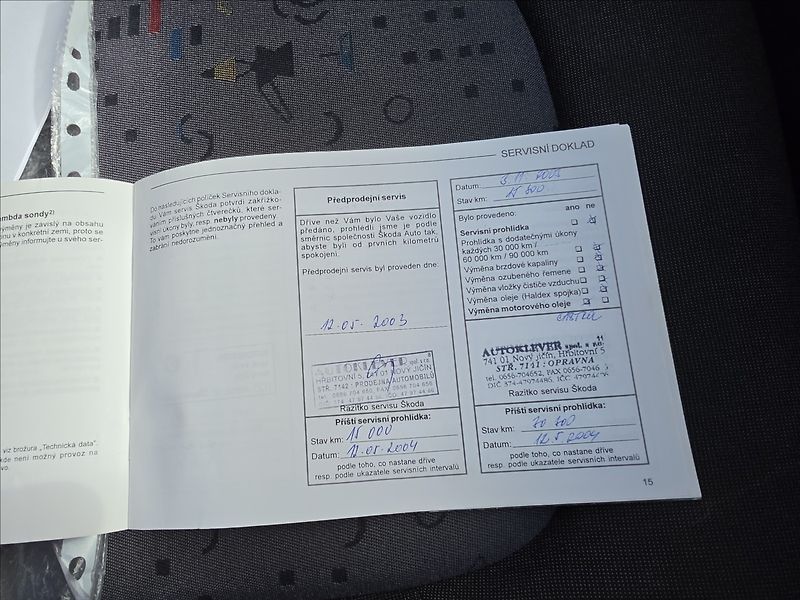 SERVISNÍ DOKLAD
ambda sondy2)
výměny je závislý na obsahu
jinu v konkrétní zemi, proto se
ýměny informujte u svého ser-
viz brožura „Technická data".
kde není možný provoz na
vo.
Do následujících políček Servisního dokla-
du Vám servis Škoda potvrdí zakřížko-
váním příslušných čtverečků, které ser-
visní úkony byly, resp. nebyly provedeny.
To vám poskytne jednoznačný přehled a
zabrání nedorozumění.
Předprodejní servis
Dříve než Vám bylo Vaše vozidlo
předáno, prohlédli jsme je podle
směrnic společnosti Škoda Auto tak,
abyste byli od prvních kilometrů
spokojeni.
Předprodejní servis byl proveden dne:
12.05. 2003
AUTOKLEVER spol. s r.o.
HŘBITOVNÍ 5, 741 01 NOVÝ JIČÍN
STŘ. 7142 : PRODEJNA AUTOMOBILŮ
Razítko servisu Škoda
Příští servisní prohlídka:
Stav km: 15 000
Datum: 12.05.2004
podle toho, co nastane dříve
resp. podle ukazatele servisních intervalů
Datum:
Stav km: 15 300
Bylo provedeno: ano ne
Servisní prohlídka
Prohlídka s dodatečnými úkony
každých 30 000 km /
60 000 km / 90 000 km
Výměna brzdové kapaliny
Výměna ozubeného řemene
Výměna vložky čističe vzduchu
Výměna oleje (Haldex spojka)
Výměna motorového oleje
AUTOKLEVER spol. s r.o.
741 01 Nový Jičín, Hřbitovní 5
STŘ. 7141 : OPRAVNA
tel. 0656-704652, FAX 0656-7046
Razítko servisu Škoda
Příští servisní prohlídka:
Stav km: 30 300
Datum: 12.5.2004
podle toho, co nastane dříve
resp. podle ukazatele servisních intervalů
15